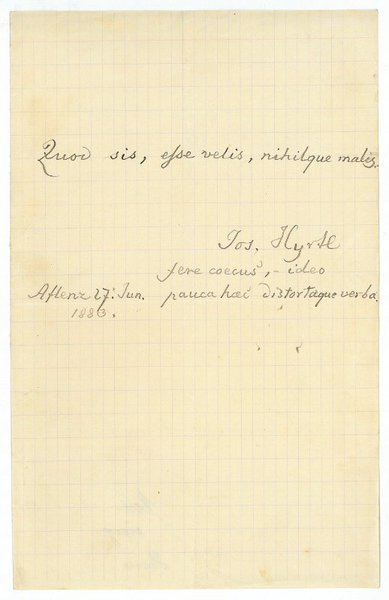 Quod sis, esse velis, nihilque malis.
Jos. Hyrtl
fere coecus, - ideo
Aflenz 27. Jun. pauca haec distortaque verba
1883.